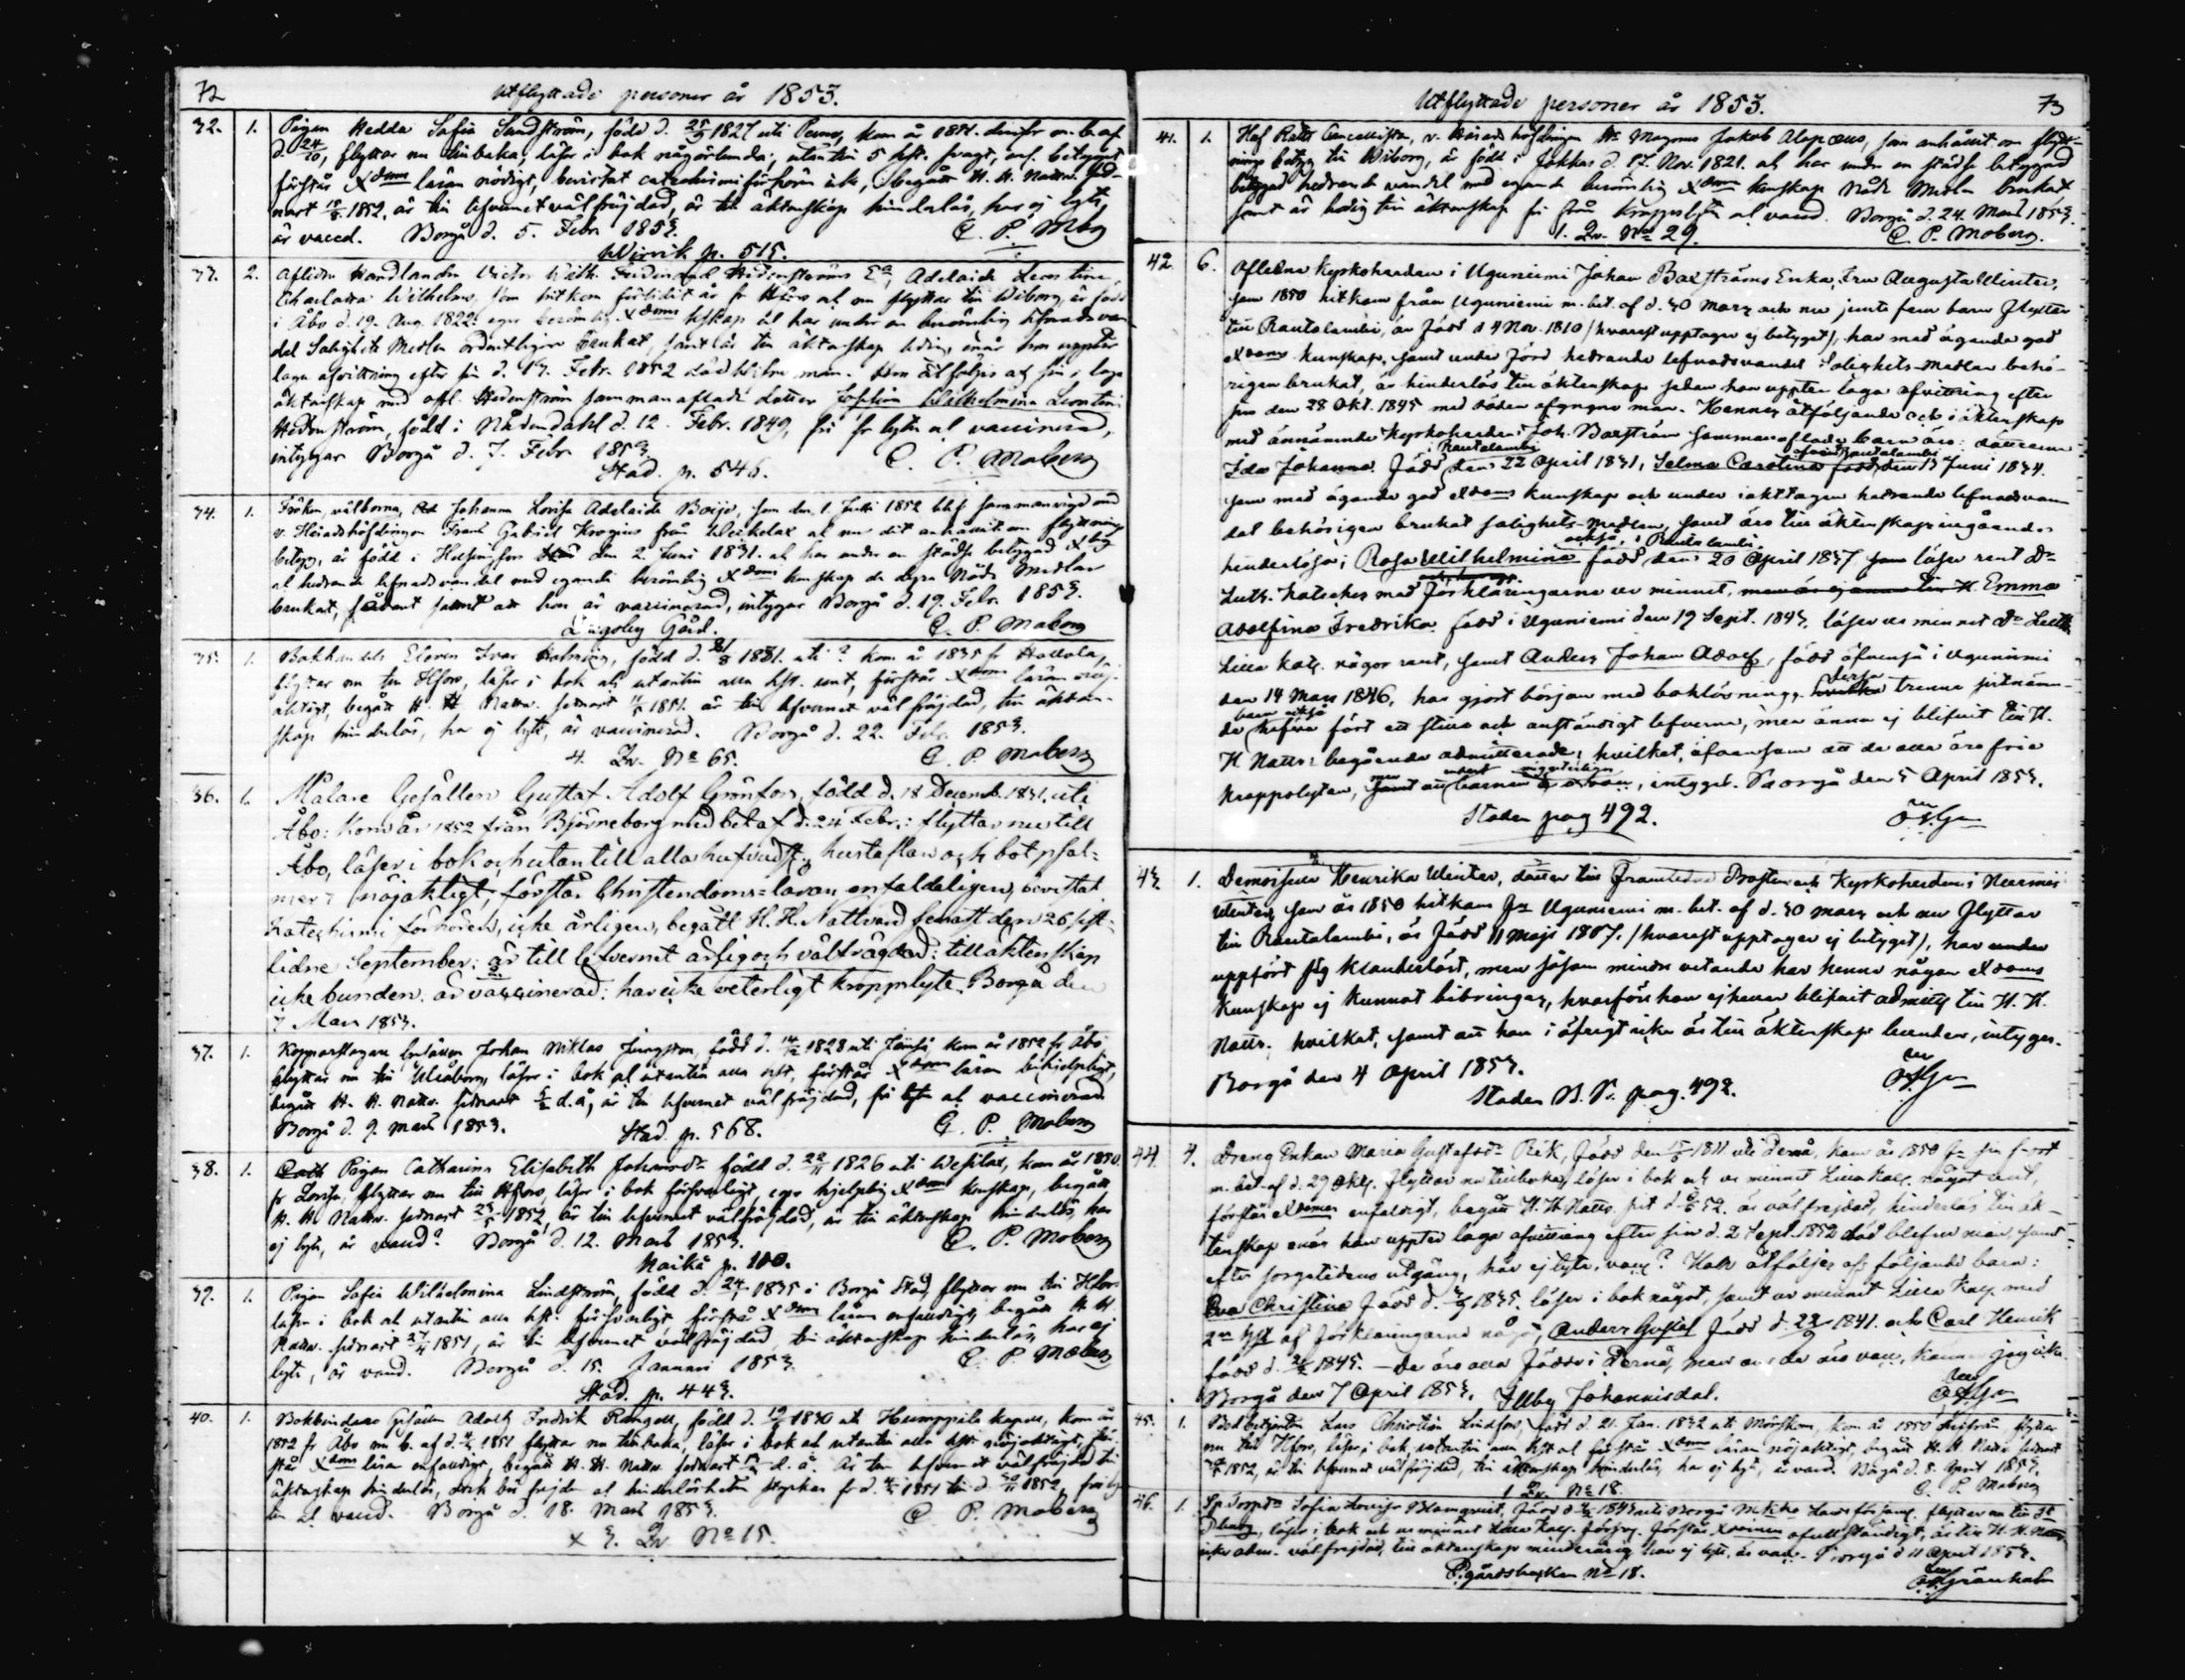 72
Utflyttade personer år 1853.
32. 1. Pigan Hedda Sofia Sundström, född d. 1827 uti Perno, kom år
d. 24/10, flyttar nu tillbaka, läser i bok någorlunda, utantill 5 hft. svagt, enf. betygat
förstår Xdoms läran nödigt, bevistat catechismiförhören icke, begått H. H. Nattv. sed-
nast 1852, är till lefvernet välfräjdad, är till äktenskap hinderlös, har ej lyte,
är vaccd. Borgå d. 5. Febr. 1853. C. P. Mbg
Wirvik p. 515.
33. 2. Aflidne Handlanden Victor Wilh. Ferdinand Hedenströms Ea, Adelaide Leontine
Charlotta Wilhelms, som hitkom förlidit år fr och nu flyttar till Wiborg, är född
i Åbo d. 19. Aug. 1822. eger berömlig Xdoms kskap och har under en berömlig lefnadsvan
del Salighets Medlen ordentligen brukat, samt är till äktenskap ledig, enär hon uppter
laga afvittning efter sin d. Febr. 1852 död blifne man. Hon åtföljes af sin i laga
äktenskap med afl. Hedenström sammanaflade dotter Josefina Wilhelmina Leontine
Hedenström, född i Nådendahl d. 12. Febr. 1849, fri fr lyte och vaccinerad,
intygar Borgå d. 7. Febr. 1853. C. P. Moberg
Stad. p. 546.
34. 1. Fröken, välborna, Johanna Lovisa Adelaide Boije, som den 1. Julii 1852 blef sammanvigd med
v. Häradshöfdingen Frans Gabriel Krogius från och nu dit anhållit om flyttnings
betyg, är född i Helsingfors den 2. Juni 1831. och har under en städse betygad
och hedrande lefnadsvandel med egande berömlig Xdoms kunskap de dyra Nåde Medlen
brukat, samt att hon är vaccinerad, intygar Borgå d. 19. Febr. 1853.
Gård. C. P. Moberg
35. 1. Bokhandels Eleven Ivar född d. 1831. uti ? kom år 1835 fr Hollola,
flyttar nu till Hfors, läser i bok och utantill alla hft. rent, förstår Xdoms läran nöj-
aktigt, begått H. H. Nattv. sednast 1851. är till lefvernet välfräjdad, till äkten-
skap hinderlös, har ej lyte, är vaccinerad. Borgå d. 22. Febr. 1853.
4. Qv. No 65. C. P. Moberg
36. 1. Målare Gesällen Gustaf Adolf Grönfors, född d. 18 Decemb. 1831. uti
Åbo: Kom år 1852 från Björneborg med bet af d. 24 Febr.: flyttar nu till
Åbo, läser i bok och utan till alla hufvudst., hustaflan och botpsal-
mer: nöjaktigt, förstår Christendoms-läran enfaldeligen, bevistat
Katechismi förhören, icke årligen, begått H. H. Nattvard senast den 26 sist-
lidne September: är till lefvernet ärlig och välfrägdad: till äktenskap
icke bunden. är vaccinerad: har icke veterligt kroppslyte. Borgå den
7 Mars 1853.
37. 1. Kopparslagare Gesällen Johan Niklas född d. 14/2 1828 uti kom år 1852 fr Åbo
flyttar nu till Uleåborg, läser i bok och utantill alla hft, förstår Xdoms läran behjelpligt,
begått H. H. Nattv. sednast d.å, är till lefvernet välfräjdad, fri lyte och vaccinerad
Borgå d. 9. Mars 1853. Stad. p. 568. C. P. Moberg
38. 1. Pigan Catharina Elisabeth Johansdr född d. 22/11 1826 uti Wesilax, kom år 1850
fr Lovisa, flyttar nu till Hfors, läser i bok försvarligt, eger hjelplig Xdoms kunskap, begått
H. H. Nattv. sednast 1852, är till lefvernet välfräjdad, är till äktenskap hinderlös, har
ej lyte, är vaccd? Borgå d. 12. Mars 1853. C. P. Moberg
p. 100.
39. 1. Pigan Sofia Wilhelmina Lindström, född d. 1835 i Borgå Stad, flyttar nu till Hfors
läser i bok och utantill alla hft. försvarligt, förstår Xdoms läran enfaldigt, begått H. H.
Nattv. sednast 1851, är till lefvernet välfräjdad, till äktenskap hinderlös, har ej
lyte, är vaccd. Borgå d. 15. Januari 1853. C. P. Moberg
Stad. p. 443.
40. 1. Bokbindare Gesällen Adolf Fredrik Rangell, född d. 1830 uti Humppila kapell, kom år
1852 fr Åbo m. b. af d. 1851 flyttar nu tillbaka, läser i bok och utantill alla hft. nöjaktigt, för-
står Xdoms läran enfaldigt, begått H. H. Nattv. sednast d. å. Är till lefvernet välfräjdad till
äktenskap hinderlös, dock bör frejden och hinderlösheten styrkas fr d. 1851 till d. 1852, fri lyte
och vaccd. Borgå d. 18. Mars 1853. C P. Moberg
x 3. Qv No 15.
Utflyttade personer år 1853. 73
41. 1. Hof Rätts Cancellisten, v. Häradshöfdingen Hr Magnus Jakob Alopæus, som anhållit om flytt-
nings betyg till Wiborg, är född i Jokkas d. 17. Nov. 1821. och har under en städse betygad
hedrande vandel med egande berömlig Xdoms kunskap Nåde Medlen brukat
samt är ledig till äktenskap fri från kroppslyte och vaccd. Borgå d. 24. Mars 1853.
1. Qv. No 29. C. P. Moberg.
42. 6. Aflidne Kyrkoherden i Uguniemi Johan Bastströms Enka, Fru Augusta Winter,
som 1850 hitkom från Uguniemi m. bet. af d. 30 Mars och nu jemte fem barn flyttar
till Rautalambi, är född d 4 Nov. 1810 /hvarest upptager ej betyget/, har med ägande god
Xdoms kunskap, samt under förd hedrande lefnadsvandel Salighets-medlen behö-
rigen brukat, är hinderlös till äktenskap sedan hon uppter laga afvittring efter
sin den 28 Okt. 1845 med döden afgångne man. Hennes åtföljande och i äktenskap
med ännämnde Kyrkoherden Joh. Bastström sammanaflade barn äro: döttrarne
Ida Johanna född i Rautalambi den 22 April 1831, Selma Carolina född den 13 Juni 1834.
som med ägande god Xdoms kunskap och under iakttagen hedrande lefnadsvan
del behörigen brukat salighets-medlen, samt äro till äktenskaps ingående
hinderlösa; Rosa Wilhelmina född också i Rautalambi den 20 April 1837 som läser rent Dr
Luth. Katechés med förklaringarne ur minnet, Emma
Adolfina Fredrika född i Uguniemi den 19 Sept. 1843, läser ur minnet Dr Luth.
Lilla Kat. någor rent, samt Anders Johan Adolf, född äfvenså i Uguniemi
den 14 Mars 1846, har gjort början med boklösningg, dessa trenne sistnämn-
da barn också hafva fört ett stilla och anständigt lefverne, men ännu ej blifvit till H.
H Nattv: begående admitterade; hvilket, äfvensom att de alla äro fria
kroppslyten, intygat. Borgå den 5 April 1853.
Staden pag 492.
43. 1. Demoiselle Henrika Winter, dotter till Framlidne Prosten och Kyrkoherden i Nurmis
Winter, som år 1850 hitkom fr Uguniemi m. bet. af d. 30 Mars och nu flyttar
till Rautalambi, är född 11 Maji 1807. /hvarest upptager ej betyget/, har
uppfört sig klanderlöst, men såsom mindre vetande har henne någon Xdoms
Kunskap ej kunnat bibringas, hvarföre hon ej heller blifvit admitt till H. H.
Nattv. hvilket, samt att hon i öfrigt icke är till äktenskap bunden, intygas.
Borgå den 4 April 1853.
Staden pag. 492.
44. 4. Dreng Enkan Maria Gustafsdr Rék, född den 1811 uti Pernå, kom år 1850 fr sin f-ort
m. bet af d. 29 Okt. flyttar nu tillbaka, läser i bok och ur minnet Lilla Kat. något rent,
förstår Xdomen enfaldigt, begått H. H. Nattv. sist d. 52. är välfrejdad, hinderlös till äk-
tenskap enär hon uppter laga afvittring efter sin d. 2 Sept. 1852 död blifne man, samt
efter sorgetidens utgång, har ej lyte, vacc? Hon åtföljes af följande barn:
Eva Christina född d. 1835. läser i bok något, samt ur minnet Lilla Kat. med
af förklaringarne något, Anders Gustaf född d. 1841. och Carl Henrik
född d. 1845. — De äro alla födde i Pernå, men om de äro vacc, känner jag icke.
Borgå den 7 April 1853. Illby Johannisdal.
45. 1. Lars Christian Lindfors, född d. 21. Jan. 1832 uti Mörskom, kom år 1850 flyttar
nu till Hfors, läser i bok, utantill alla hft och förstår Xdoms läran nöjaktigt, begått H. H. Nattv sednast
1852, är till lefvernet välfräjdad, till äktenskap hinderlös, har ej lyte, är vaccd. Borgå d. 8. April 1853.
1 Qv. No 18. C. P. Moberg
46. 1. Sofia Lovisa Blomqvist, född d. 1843 uti Borgå flyttar nu till St
läser i bok och ur minnet Lilla Kat. förstår Xdomen ofullständigt, är till H. H. Nattv
icke adm. välfrejdad, till äktenskap minderårig har ej lyte, är vacc. Borgå d 11 April 1853.
No 18. Grönholm